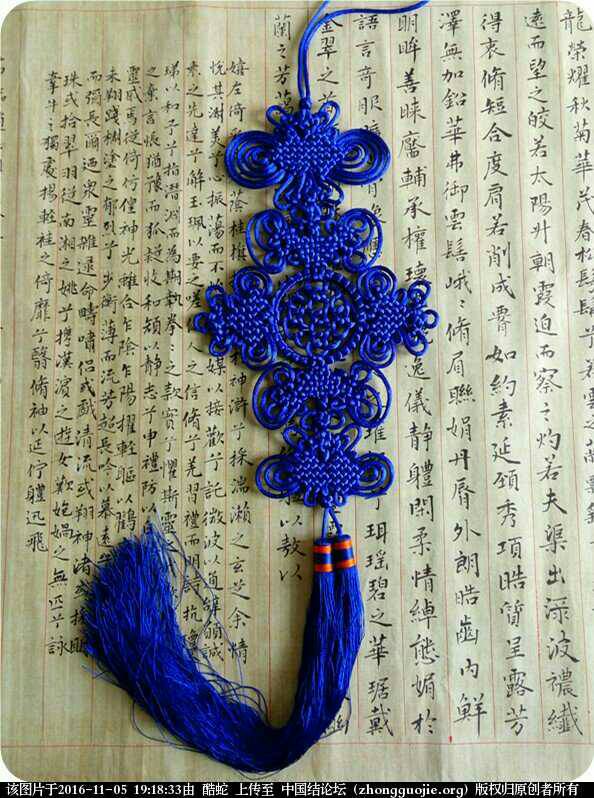 龍榮耀秋菊華茂春松髣髴
遠而望之皎若太陽升朝霞迫而察之灼若夫渠出淥波襛纖
得衷脩短合度肩若削成腰如約素延頸秀項皓質呈露芳
澤無加鉛華弗御雲髻峨〻脩眉聯娟丹脣外朗皓齒內鮮
明眸善睞靨輔承權瓌逸儀靜體閑柔情綽態媚於
語言奇服珥瑤碧之華琚戴
金翠之首
蘭之芳藹以敖以
嬉左倚蔭桂旗神滸兮採湍瀨之玄芝余情
悅其淑美兮心振蕩而不媒以接歡兮託微波以通辭願誠
素之先達兮解玉珮以要之嗟人之信脩兮羌習禮而明詩抗瓊
珶以和予兮指潛淵而為期執拳〻之款實兮懼斯靈之
之棄言悵猶豫而狐疑收和顏以靜志兮申禮防以
靈感焉徙倚仿偟神光離合乍陰乍陽擢輕軀以鶴
未翔踐椒塗之郁烈兮步衡薄而流芳超長吟以慕
而彌長爾迺眾靈雜遝命疇嘯侶或戲清流或翔神渚或採明
珠或拾翠羽從南湘之姚兮攜漢濱之遊女歎匏媧之無匹兮詠
牽牛之獨處揚輕袿之倚靡兮翳脩袖以延佇體迅飛
该图片于2016-11-05 19:18:33由 酷蛇 上传至 中国结论坛 (zhongguojie.org) 版权归原创者所有